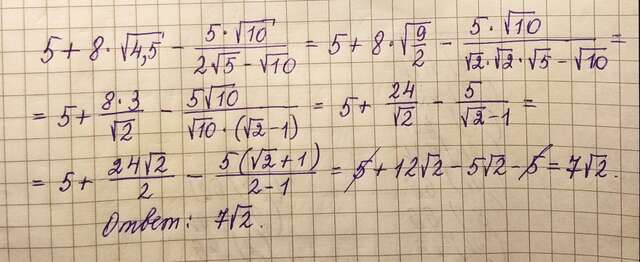 5 + 8 · √4,5 − (5 · √10)/(2√5 − √10) = 5 + 8 · √(9/2) − (5 · √10)/(√2 · √2 · √5 − √10) =
= 5 + (8 · 3)/√2 − (5√10)/(√10 · (√2 − 1)) = 5 + 24/√2 − 5/(√2 − 1) =
= 5 + (24√2)/2 − (5(√2 + 1))/(2 − 1) = 5 + 12√2 − 5√2 − 5 = 7√2.
Ответ: 7√2.